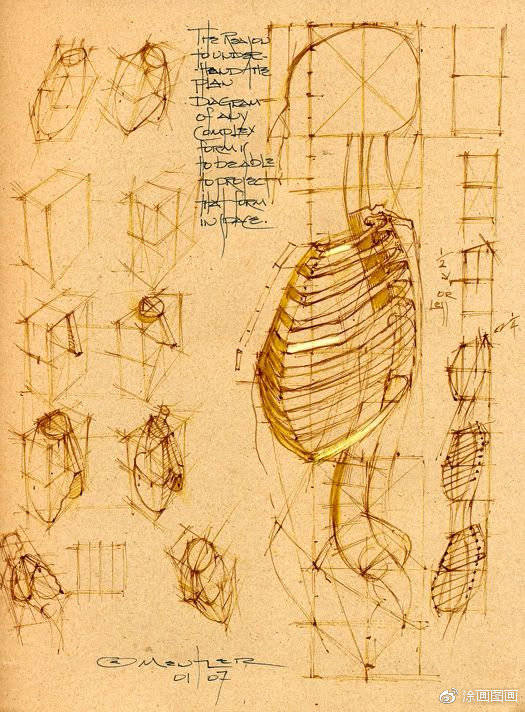 THE REASON
TO UNDER-
STAND THE
PLAN
DIAGRAM
OF ANY
COMPLEX
FORM IS
TO BE ABLE
TO PROJECT
THAT FORM
IN SPACE.
1/2
OR
1/4
© MENTLER
01/07
涂画图画